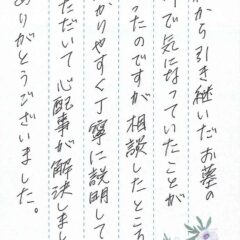 から引き継いだお墓の
で気になっていたことが
ったのですが相談したところ
かりやすく丁寧に説明して
ただいて心配事が解決しまし
ありがとうございました。